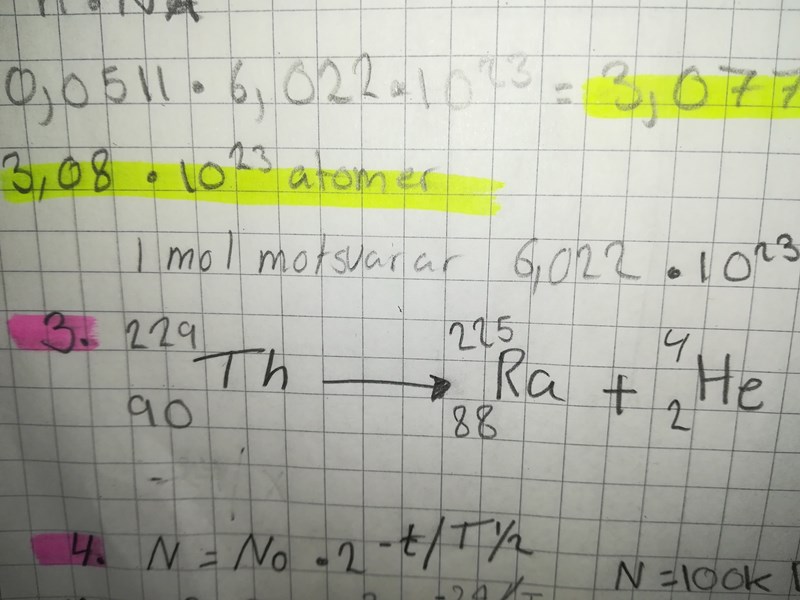 0,0511 · 6,022 · 10²³ = 3,077
3,08 · 10²³ atomer
1 mol motsvarar 6,022 · 10²³
3. ²²⁹₉₀Th → ²²⁵₈₈Ra + ⁴₂He
4. N = N₀ · 2^-t/T½
N = 100k